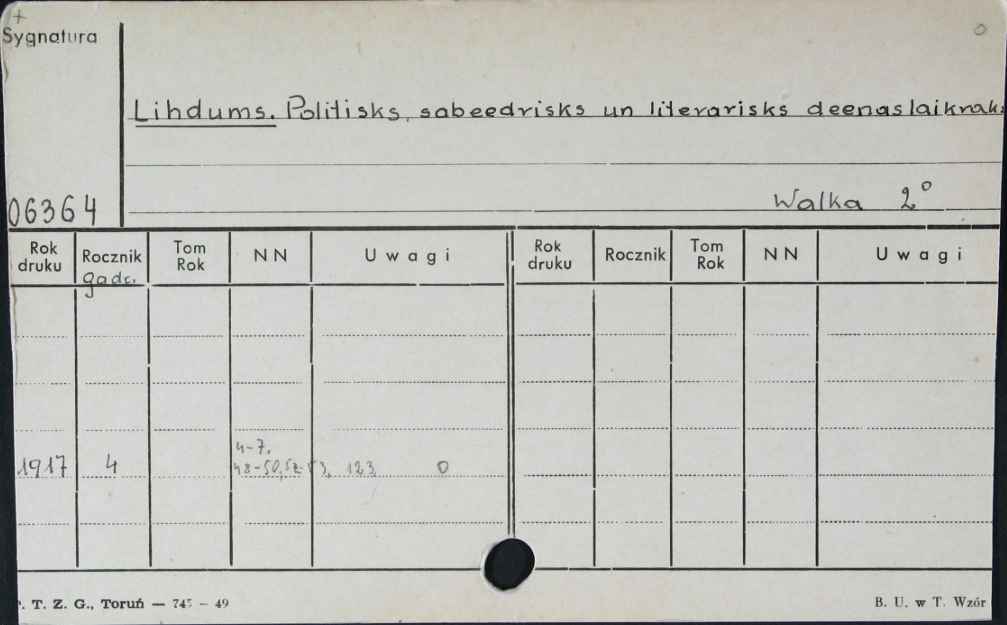 +
Sygnatura
o
Lihdums. Politisks, sabeedrisks un literarisks deenas laikrak
06364
Walka 2°
Rok druku Rocznik Tom Rok NN Uwagi Rok druku Rocznik Tom Rok NN Uwagi
gadc.
4-7,
1917 4 48-50, 52- 123 0
T. Z. G., Toruń — 745 — 49
B. U. w T. Wzór